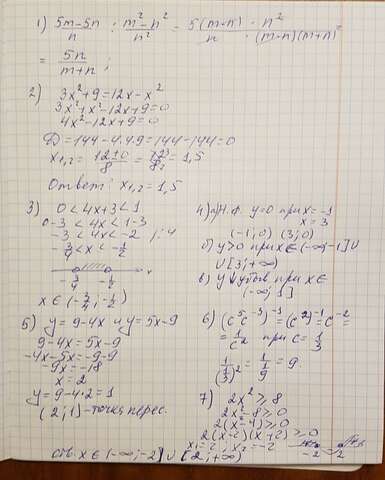 1) (5m-5n)/n : (m²-n²)/n² = 5(m-n)/n · n²/((m-n)(m+n)) =
= 5n/(m+n);
2) 3x²+9=12x-x²
3x²+x²-12x+9=0
4x²-12x+9=0
D=144-4·4·9=144-144=0
x₁,₂=(12±0)/8=12/8=1,5
Ответ: x₁,₂=1,5
3) 0<4x+3<1
0-3<4x<1-3
-3<4x<-2 /:4
-3/4<x<-1/2
-3/4 -1/2 x
x∈(-3/4;-1/2)
4) a) Н.Ф. y=0 при x=-1
x=3
(-1;0) (3;0)
б) y>0 при x∈(-∞;-1]∪
∪[3;+∞)
в) y убыв при x∈
(-∞;1]
5) y=9-4x и y=5x-9
9-4x=5x-9
-4x-5x=-9-9
-9x=-18
x=2
y=9-4·2=1
(2;1)-точка перес.
6) (c⁵c⁻³)⁻¹=(c²)⁻¹=c⁻²=
=1/c² при c=1/3
1/(1/3)²=1/(1/9)=9.
7) 2x²≥8
2x²-8≥0
2(x²-4)≥0
2(x-2)(x+2)≥0
x₁=2; x₂=-2
-2 2
Отв. x∈(-∞;-2]∪[2;+∞)